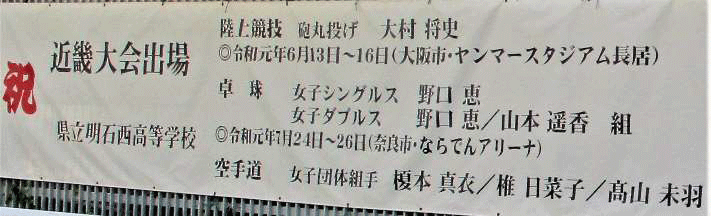 祝
近畿大会出場
県立明石西高等学校
陸上競技 砲丸投げ 大村 将史
◎令和元年6月13日～16日(大阪市・ヤンマースタジアム長居)
卓球 女子シングルス 野口 恵
女子ダブルス 野口 恵／山本 遥香 組
◎令和元年7月24日～26日(奈良市・ならでんアリーナ)
空手道 女子団体組手 榎本 真衣／椎 日菜子／髙山 未羽